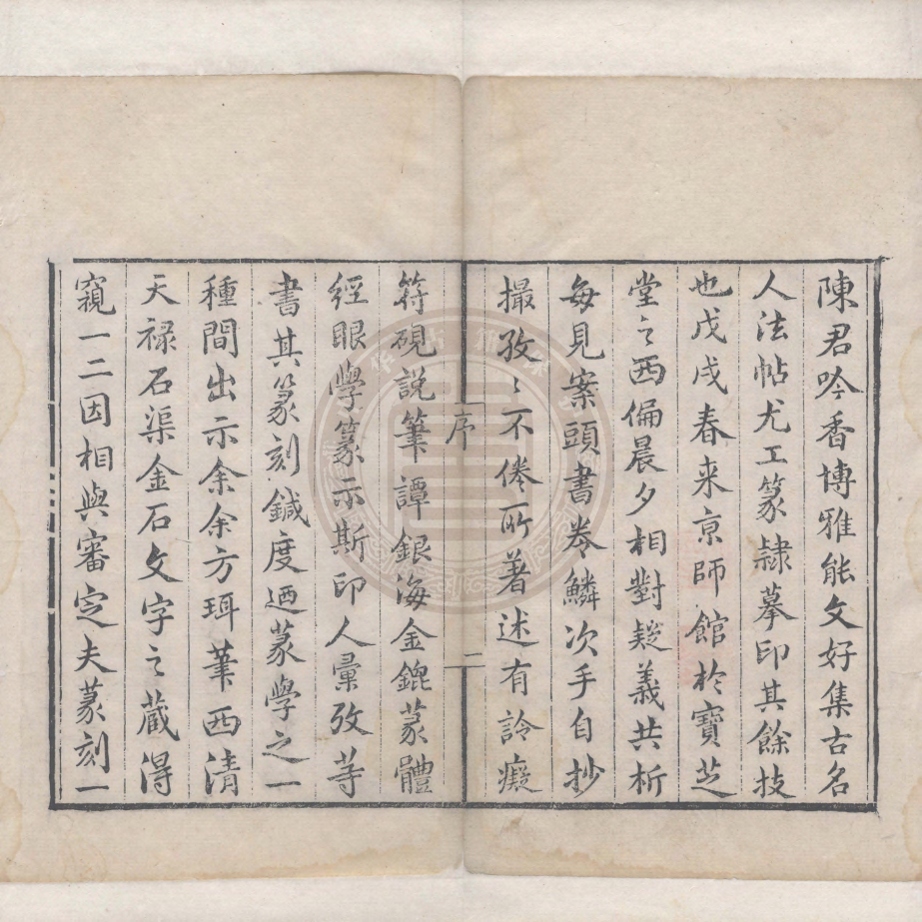 陳君吟香博雅能文好集古名
人法帖尤工篆隷摹印其餘技
也戊戌春来京師館於寶芝
堂之西偏晨夕相對疑義共析
每見案頭書卷鱗次手自抄
撮孜〻不倦所著述有詅癡
序
一
符硯説筆譚銀海金鎞篆體
經眼學篆示斯印人彙攷等
書其篆刻鍼度迺篆學之一
種間出示余余方珥筆西清
天禄石渠金石文字之蔵得
窺一二因相與審定夫篆刻一